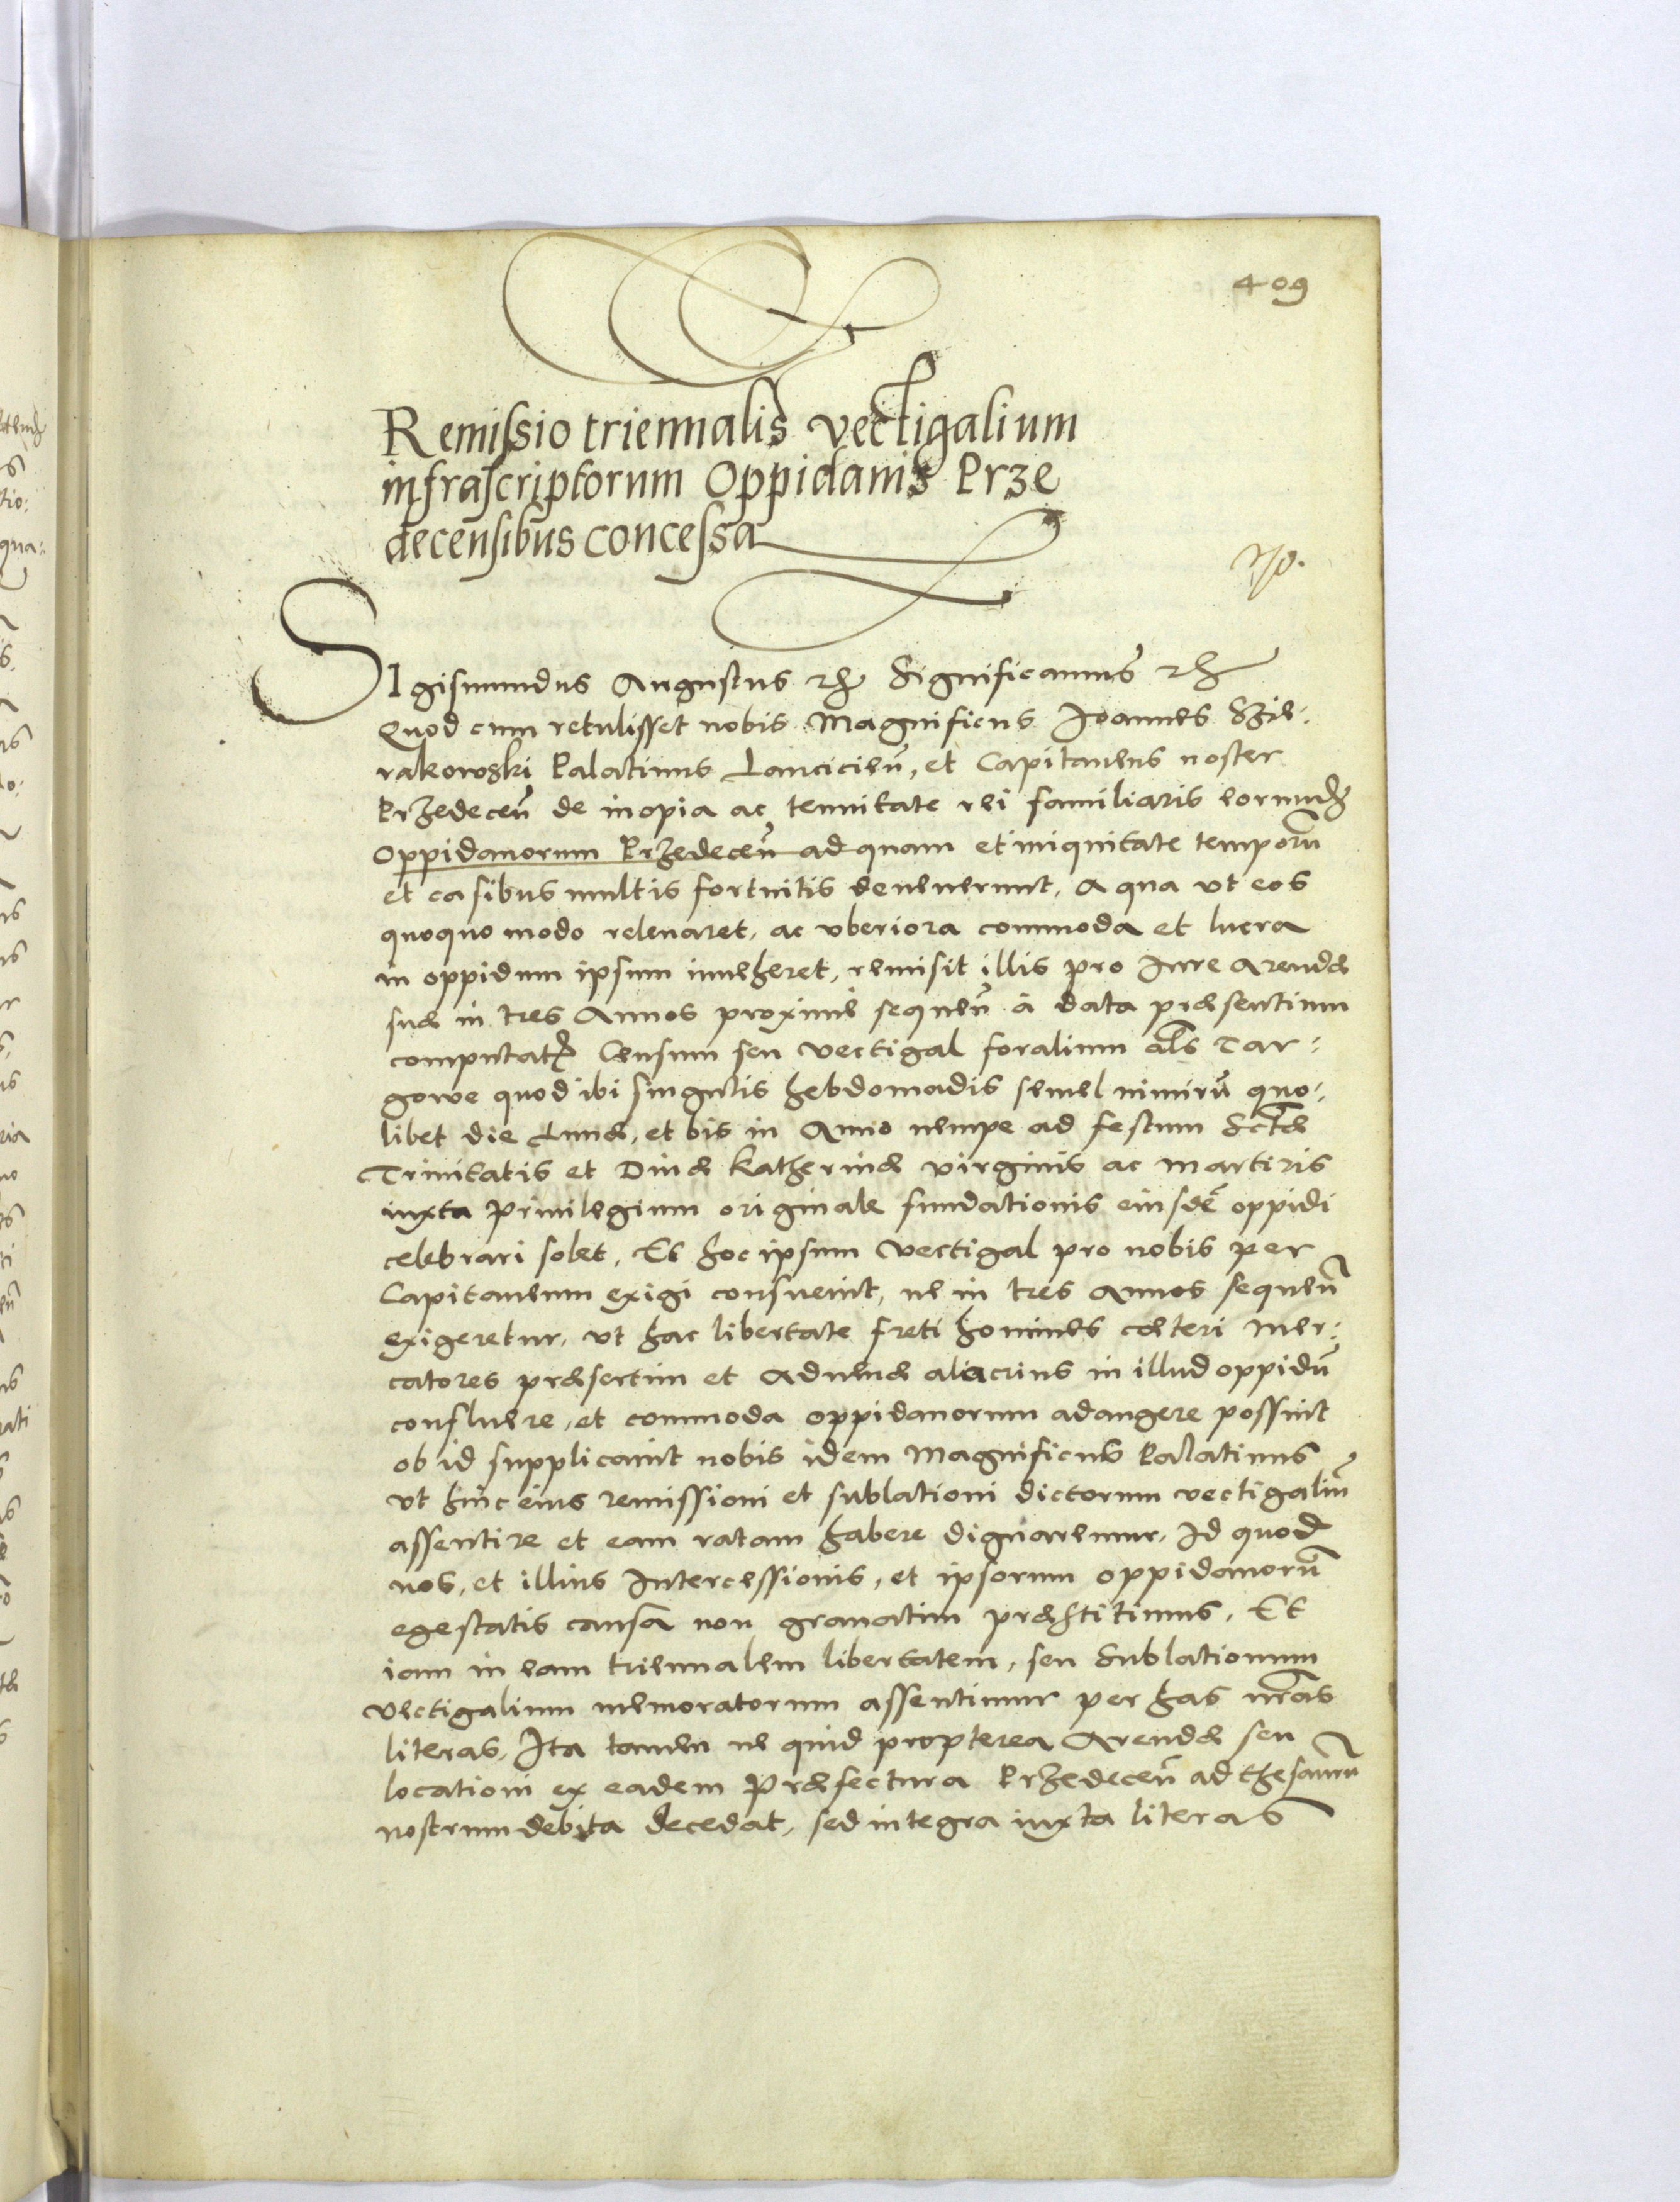 409
Remissio triennalis vectigalium
infrascriptorum Oppidanis Prze
decensibus concessa
Sigismundus Augustus etc Significamus etc
Quod cum retulisset nobis Magnificus Ioannes Szie-
rakowski Palatinus Lancicien̄, et Capitaneus noster
Przedecen̄ de inopia ac tenuitate rei familiaris eorundē
Oppidanorum Przedecen̄ ad quam et iniquitate temporū
et casibus multis fortuitis devenerunt, a qua ut eos
quoquo modo relevaret, ac uberiora commoda et lucra
in oppidum ipsum inveheret, remisit illis pro Iure Arendæ
suæ in tres Annos proximè sequen̄ à data præsentium
computatę Censum seu vectigal foralium als̄ Tar:
gowe quod ibi singulis hebdomadis semel nimirū quo:
libet die Lunæ, et bis in Anno nempe ad festum Sctæ
Trinitatis et Divæ Katherinæ virginis ac martiris
iuxta Privilegium originale fundationis eiusdē oppidi
celebrari solet, Et hoc ipsum vectigal pro nobis per
Capitaneum exigi consuevit, ne in tres Annos sequen̄
exigeretur, ut hac libertate freti homines cæteri Mer:
catores præsertim et Advenæ alacrius in illud oppidū
confluere, et commoda oppidanorum adaugere possint
ob id supplicavit nobis idem Magnificus Palatinus
ut huic eius remissioni et sublationi dictorum vectigaliū
assentire et eam ratam habere dignaremur, Id quod
nos, et illius Intercessionis, et ipsorum oppidanorū
egestatis causa non gravatim præstitimus, Et
iam in eam triennalem libertatem, seu Sublationum
vectigalium memoratorum assentimur per has nr̄as
literas, Ita tamen ne quid propterea Arendæ seu
locationi ex eadem Præfectura Przedecen̄ ad thesaurū
nostrum debita decedat, sed integra iuxta literas